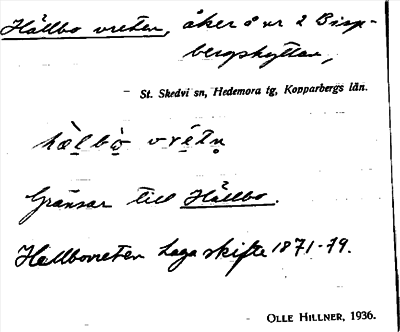 Hällbo vreten, åker å nr 2 Bisp-
bergshyttan,
St. Skedvi sn, Hedemora tg, Kopparbergs län.
hæ̀lbò vrétn̥
Gränsar till Hällbo.
Hællbovreten Laga skifte 1871-79.
OLLE HILLNER, 1936.